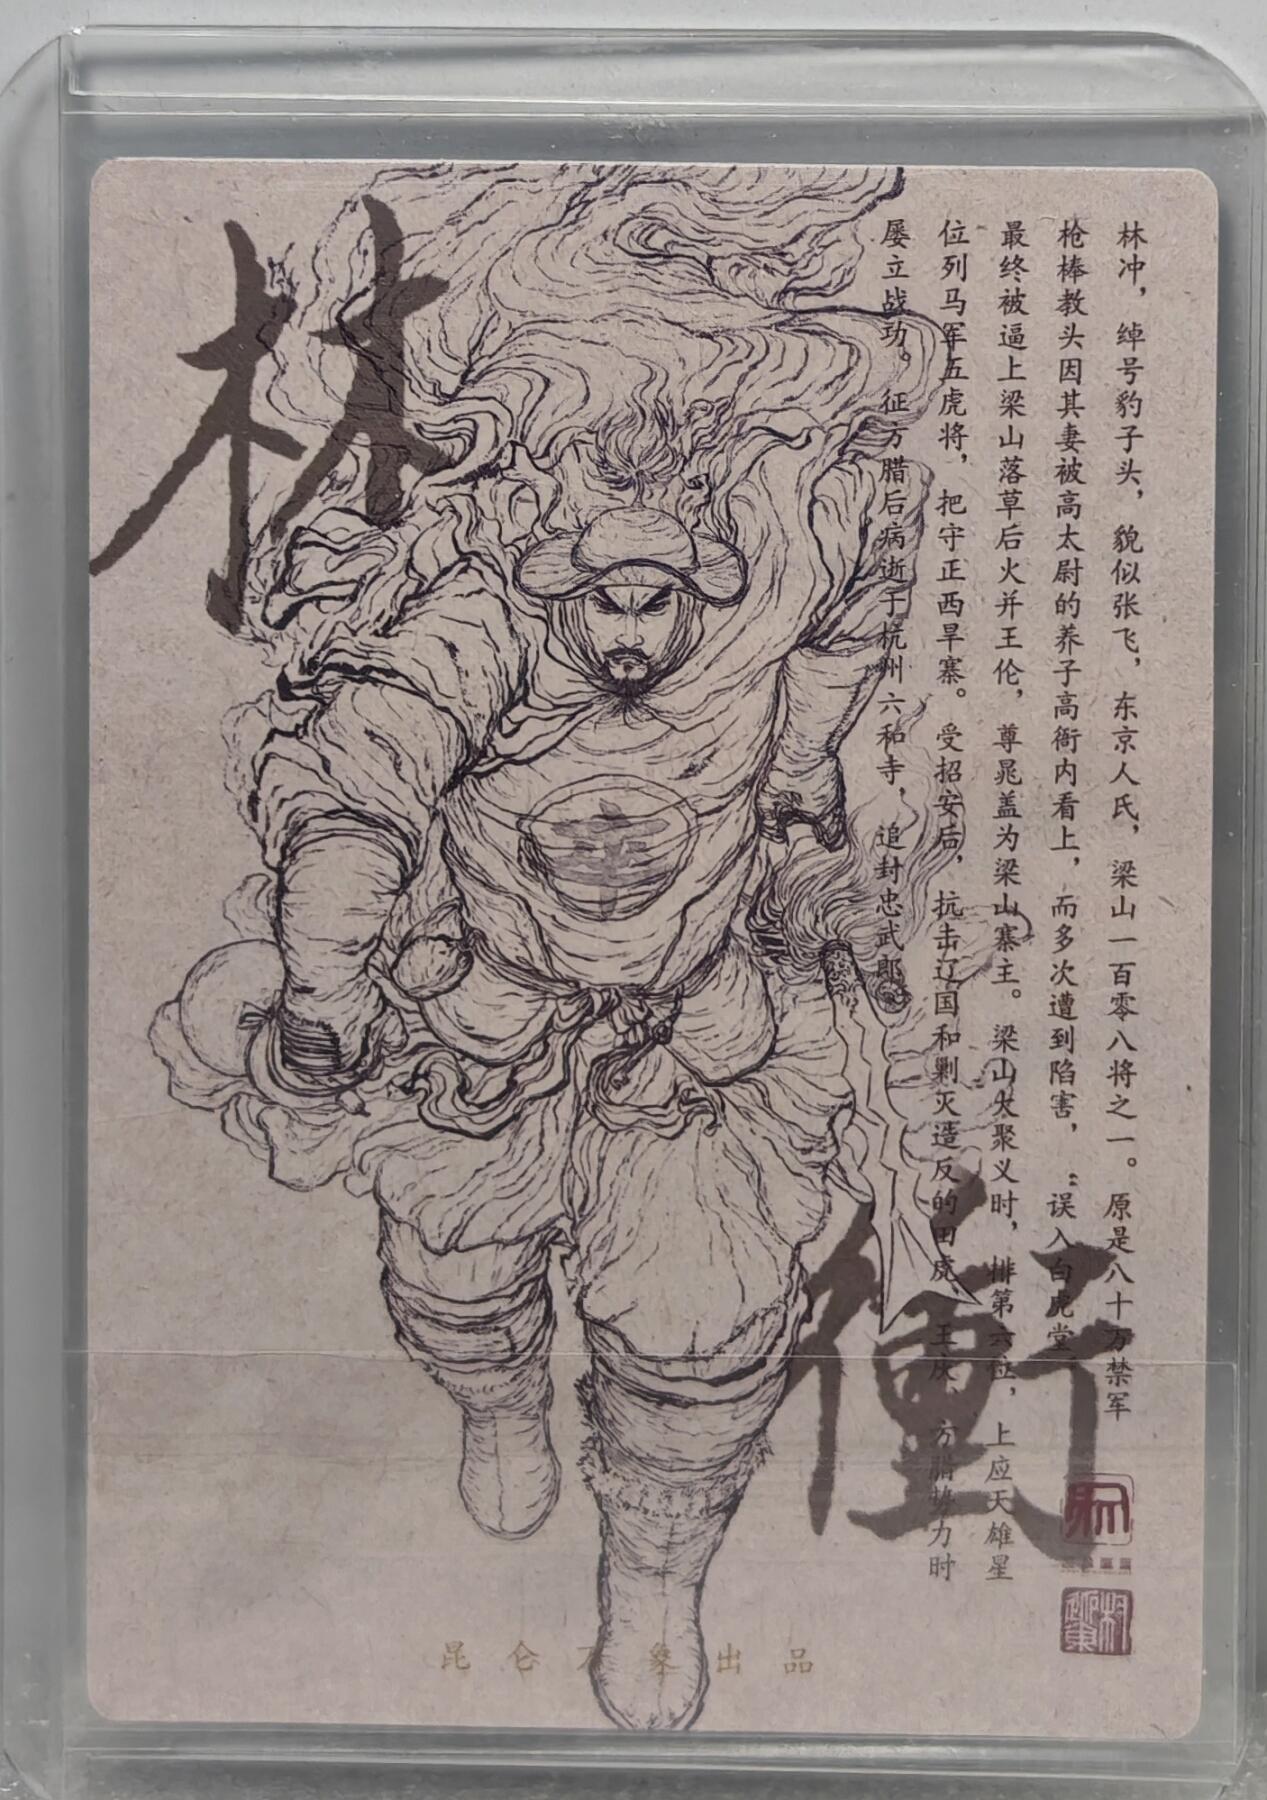 林
衝
林冲，绰号豹子头，貌似张飞，东京人氏，梁山一百零八将之一。原是八十万禁军
枪棒教头因其妻被高太尉的养子高衙内看上，而多次遭到陷害，：误入白虎堂
最终被逼上梁山落草后火并王伦，尊晁盖为梁山寨主。梁山大聚义时，排第六位，上应天雄星
位列马军五虎将，把守正西旱寨。受招安后，抗击辽国和剿灭造反的田虎、王庆、方腊势力时
屡立战功。征方腊后病逝于杭州六和寺，追封忠武郎
昆仑万象出品